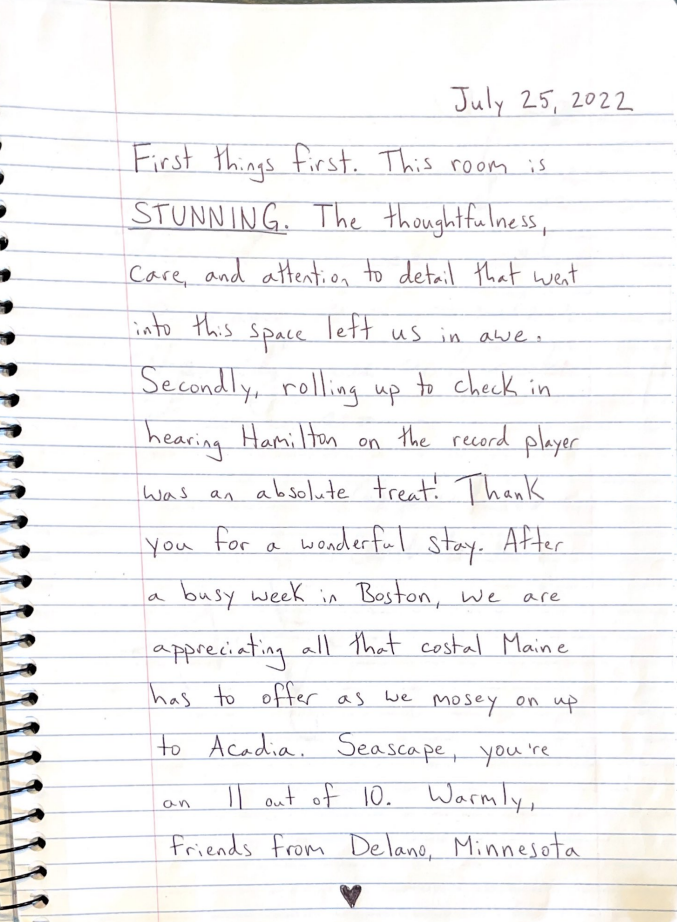 July 25, 2022
First things first. This room is
STUNNING. The thoughtfulness,
care, and attention to detail that went
into this space left us in awe.
Secondly, rolling up to check in
hearing Hamilton on the record player
was an absolute treat! Thank
you for a wonderful stay. After
a busy week in Boston, we are
appreciating all that costal Maine
has to offer as we mosey on up
to Acadia. Seascape, you're
an 11 out of 10. Warmly,
friends from Delano, Minnesota
♥